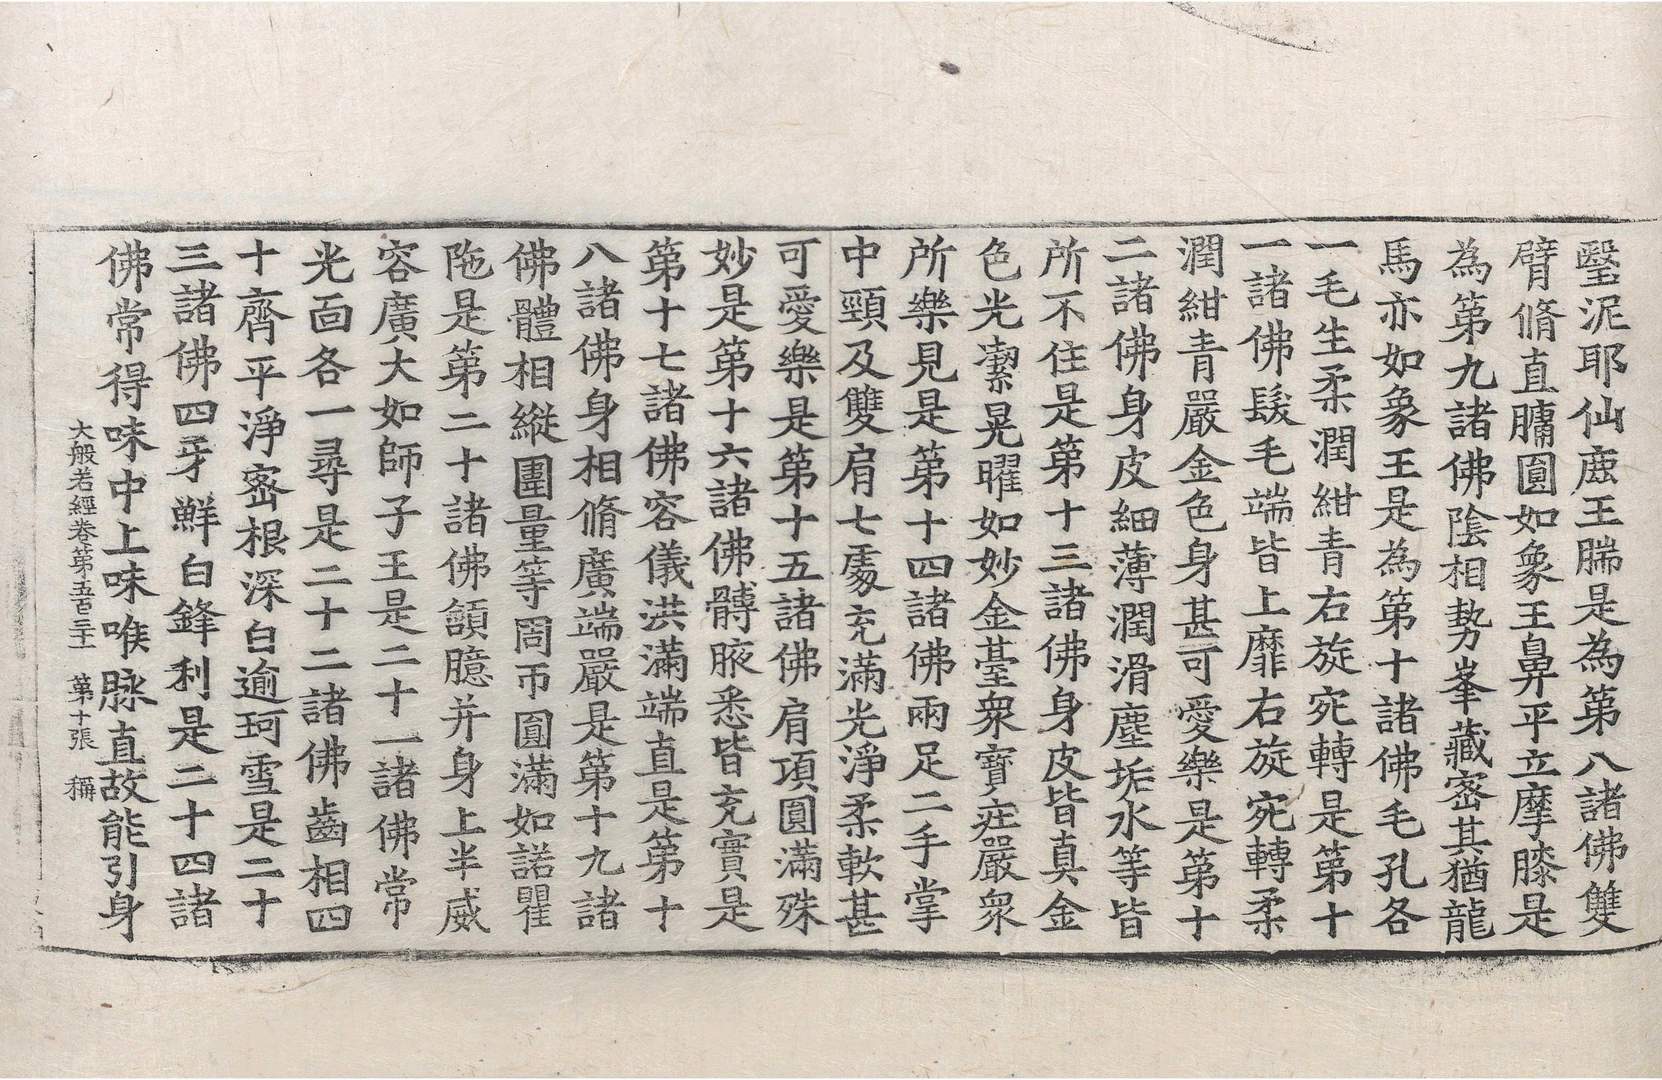 瑿泥耶仙鹿王腨是為第八諸佛雙
臂脩直𦟛圓如象王鼻平立摩膝是
為第九諸佛陰相勢峯藏密其猶龍
馬亦如象王是為第十諸佛毛孔各
一毛生柔潤紺青右旋宛轉是第十
一諸佛髮毛端皆上靡右旋宛轉柔
潤紺青嚴金色身甚可愛樂是第十
二諸佛身皮細薄潤滑塵垢水等皆
所不住是第十三諸佛身皮皆真金
色光潔晃曜如妙金臺衆寶莊嚴衆
所樂見是第十四諸佛兩足二手掌
中頸及雙肩七處充滿光淨柔軟甚
可愛樂是第十五諸佛肩項圓滿殊
妙是第十六諸佛髆腋悉皆充實是
第十七諸佛容儀洪滿端直是第十
八諸佛身相脩廣端嚴是第十九諸
佛體相縱圍量等周帀圓滿如諾瞿
陁是第二十諸佛頷臆并身上半威
容廣大如師子王是二十一諸佛常
光面各一尋是二十二諸佛齒相四
十齊平淨密根深白逾珂雪是二十
三諸佛四牙鮮白鋒利是二十四諸
佛常得味中上味喉脉直故能引身
大般若經卷第五百三十一 第十張 稱